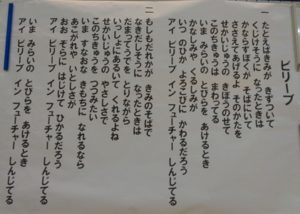 ビリーブ
一 たとえばきみが きずついて
くじけそうに なったときは
かならずぼくが そばにいて
ささえてあげるよ そのかたを
せかいじゅうの きぼうのせて
このちきゅうは まわってる
いま みらいの とびらを あけるとき
かなしみや くるしみが
いつのひか よろこびに かわるだろう
アイ ビリーブ イン フューチャー しんじてる
二 もしもだれかが きみのそばで
なきだしそうに なったときは
だまってうでを とりながら
いっしょにあるいて くれるよね
せかいじゅうの やさしさで
このちきゅうを つつみたい
いま すなおな きもちに なれるなら
あこがれや いとしさが
おおぞらに はじけて ひかるだろう
アイ ビリーブ イン フューチャー しんじてる
いま みらいの とびらを あけるとき
アイ ビリーブ イン フューチャー しんじてる